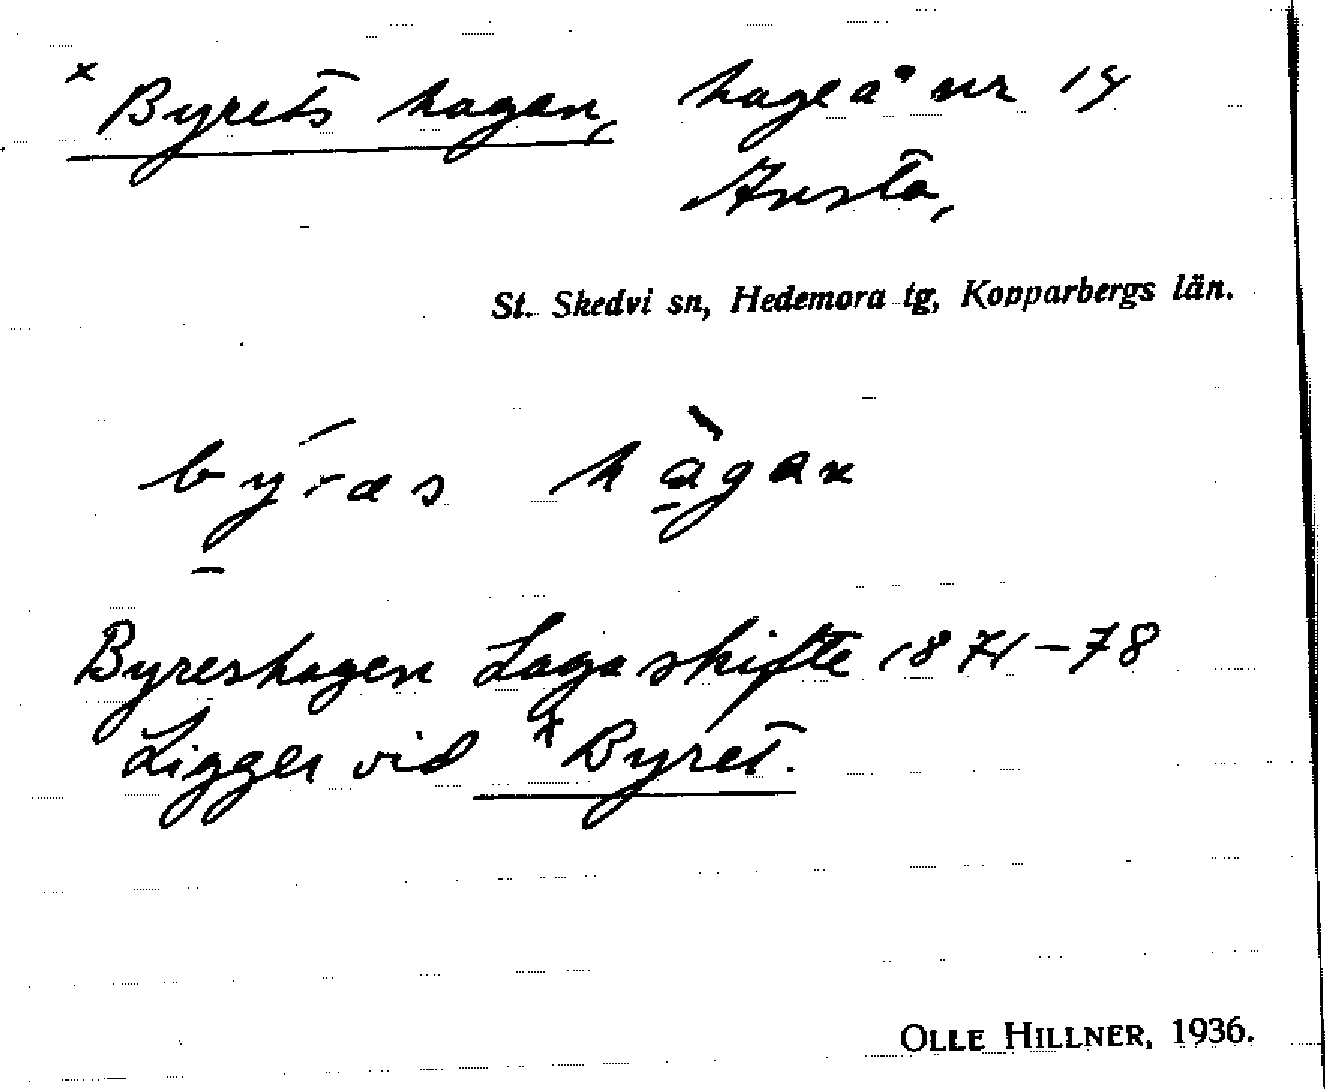 x Byrets hagen, hage å nr 14
Arsta,
St. Skedvi sn, Hedemora tg, Kopparbergs län.
býras hàgan
Byreshagen Laga skifte 1871-78
Ligger vid x Byret.
OLLE HILLNER, 1936.